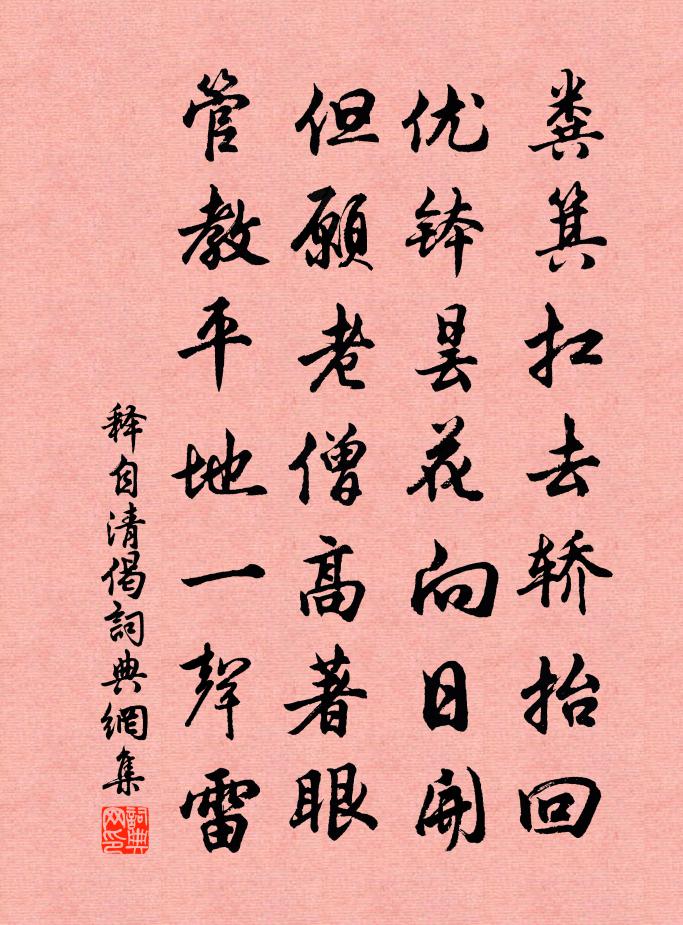 粪箕扛去轿抬回
优钵昙花向日開
但願老僧高著眼
管教平地一聲雷
释自清偈詞典網集
詞典网印